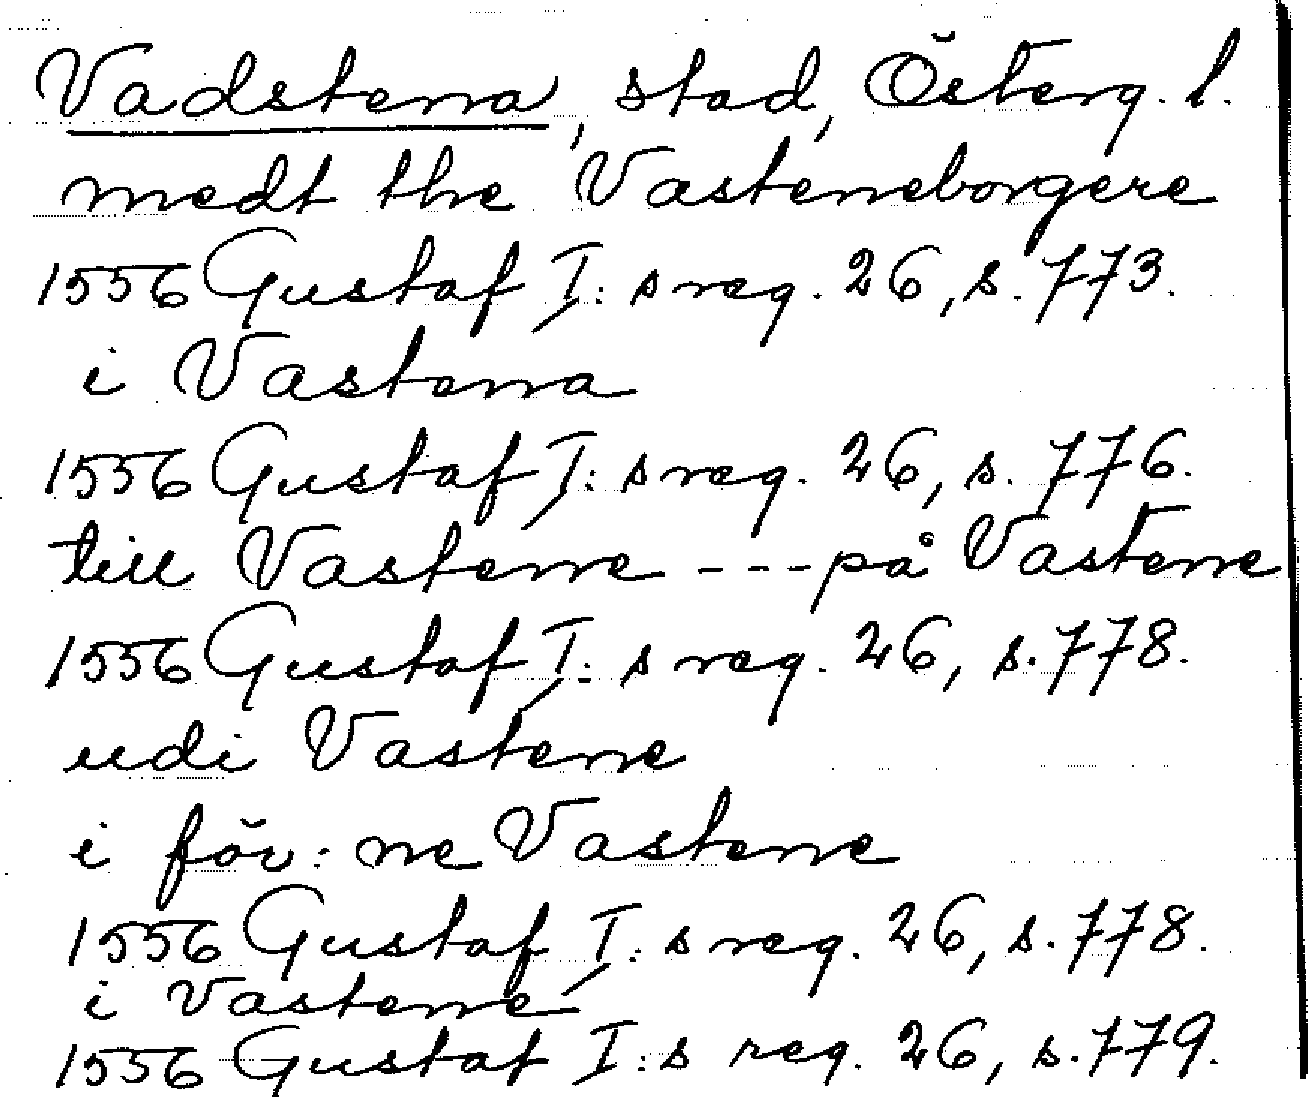 Vadstena, stad, Österg. l.
medt the Vasteneborgere
1556 Gustaf I:s reg. 26, s. 773.
i Vastena
1556 Gustaf I:s reg. 26, s. 776.
till Vastene --- på Vastene
1556 Gustaf I:s reg. 26, s. 778.
udi Vastene
i för:ne Vastene
1556 Gustaf I:s reg. 26, s. 778.
i Vastene
1556 Gustaf I:s reg. 26, s. 779.